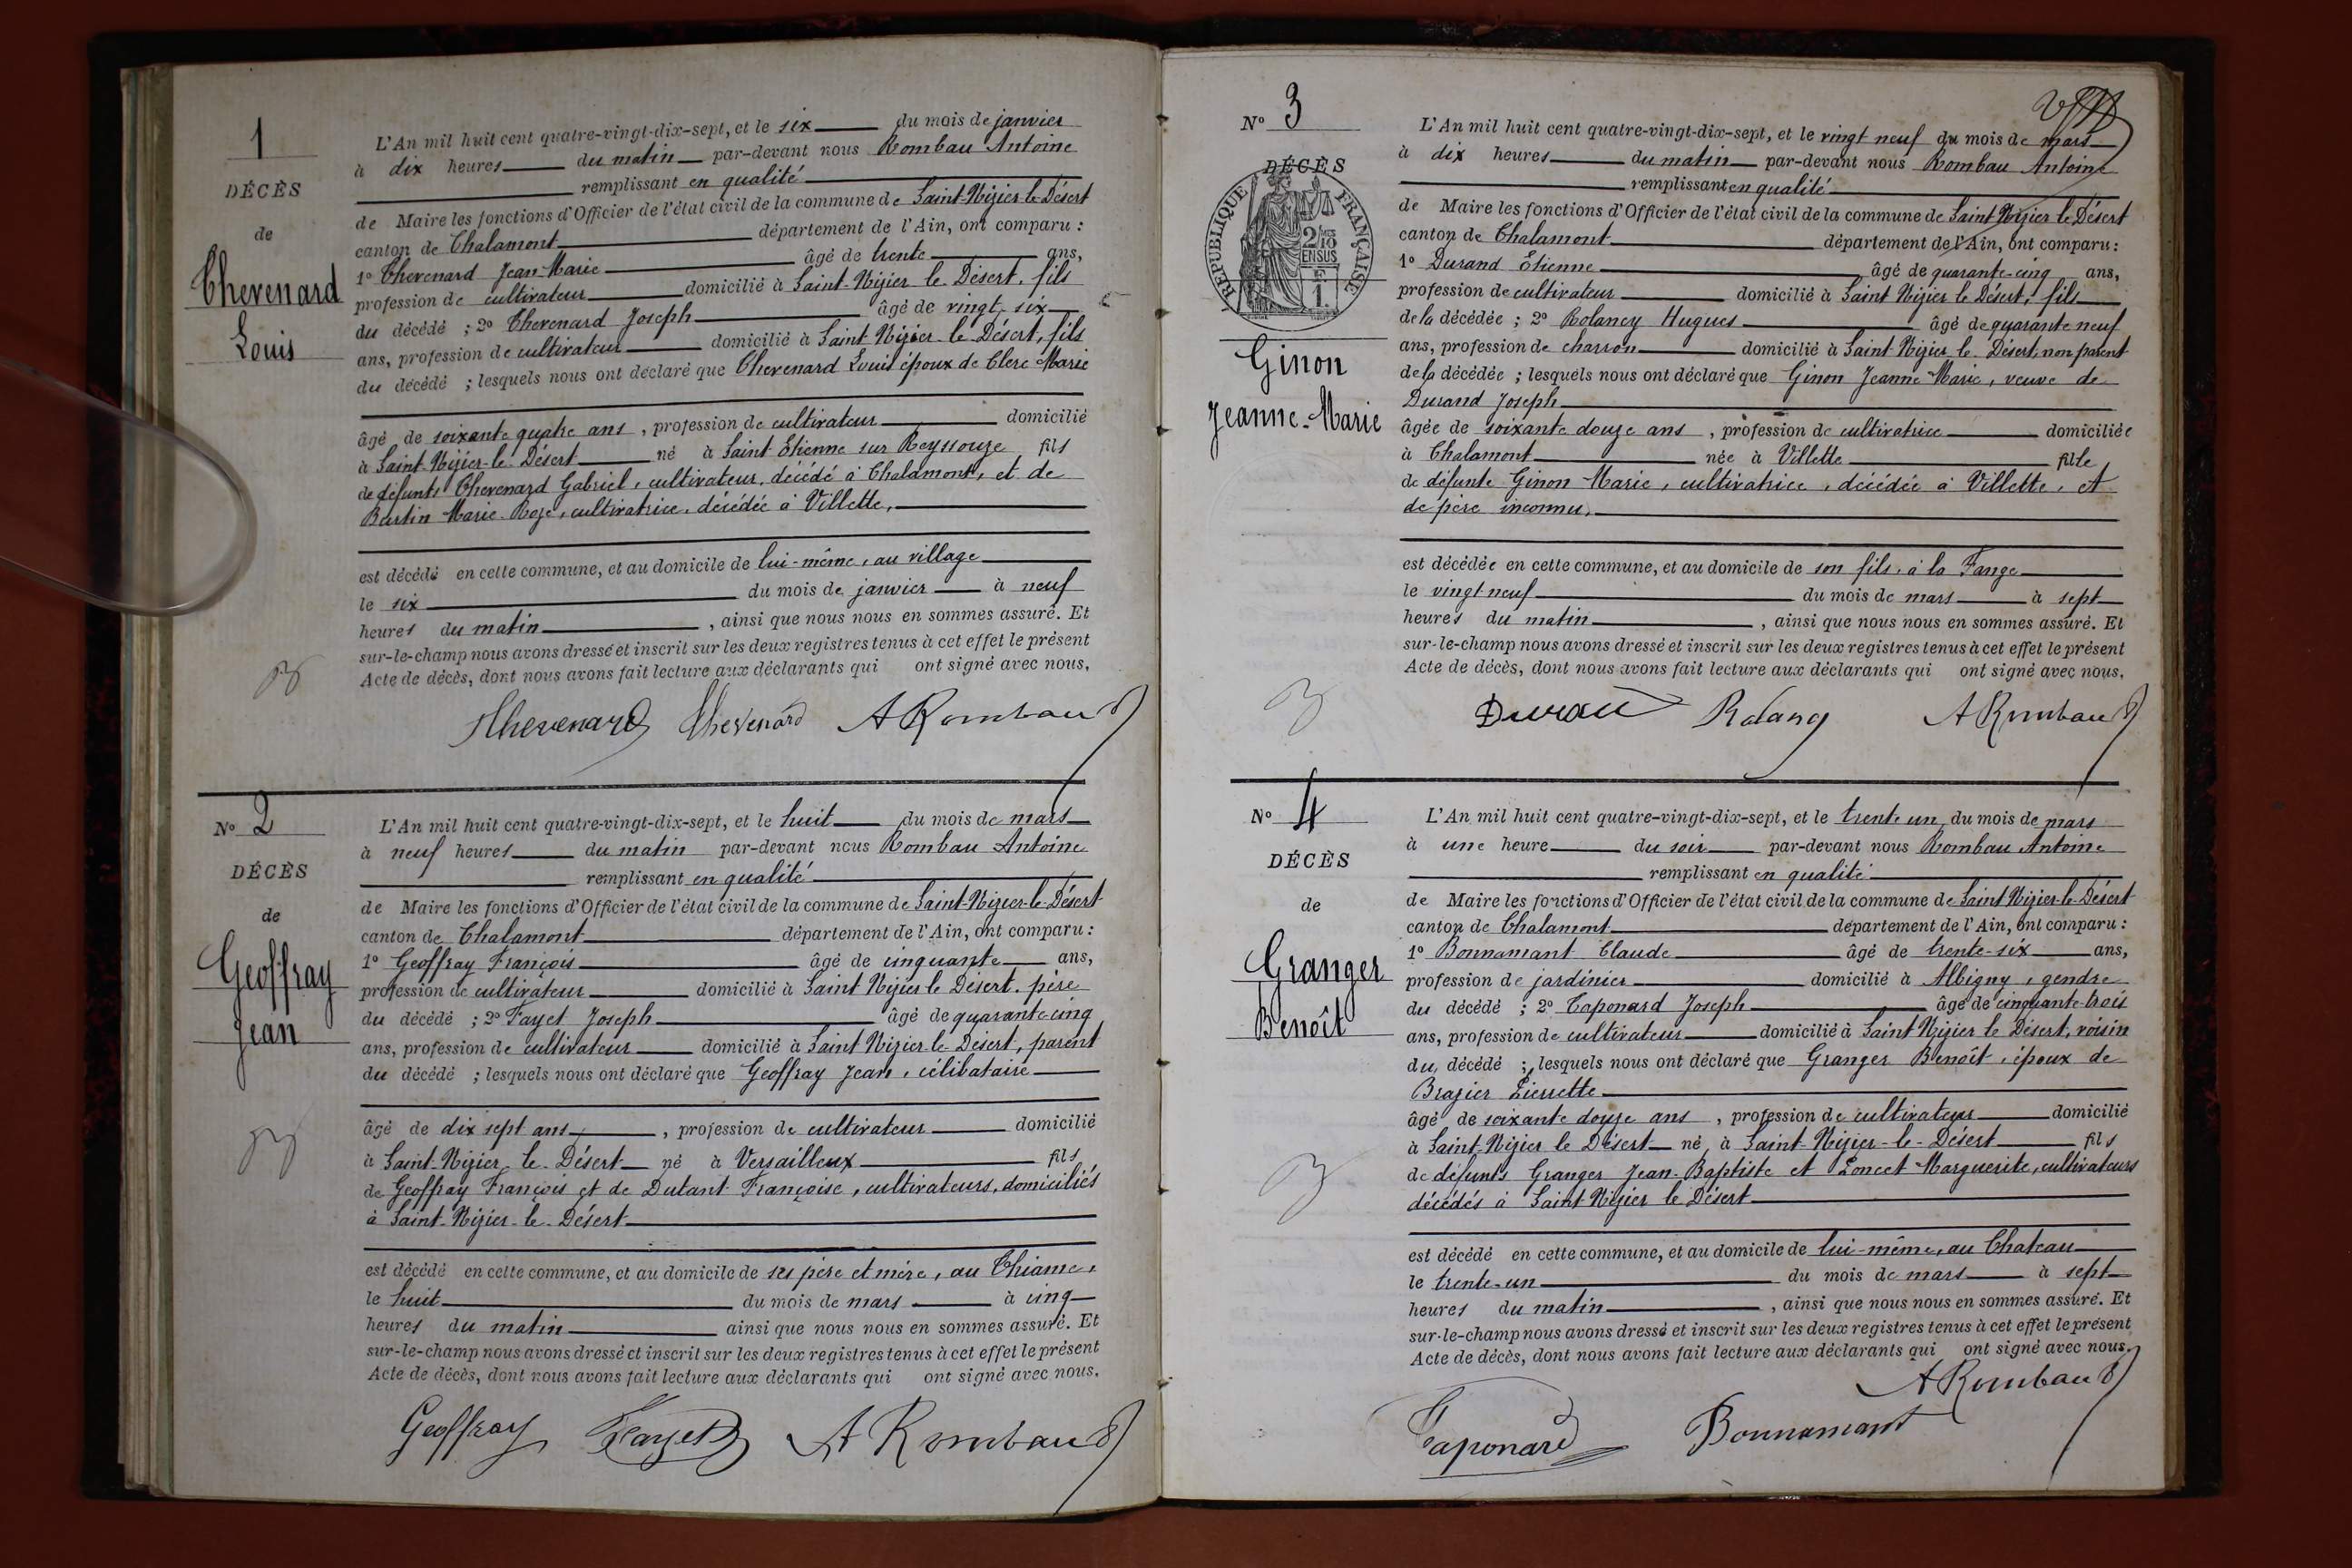 1
DÉCÈS
de
Chevenard
Louis
L'An mil huit cent quatre-vingt-dix-sept, et le six du mois de janvier
à dix heures du matin par-devant nous Rombau Antoine
remplissant en qualité
de Maire les fonctions d'Officier de l'état civil de la commune de Saint-Nizier-le-Désert
canton de Chalamont département de l'Ain, ont comparu :
1º Chevenard Jean-Marie âgé de trente ans,
profession de cultivateur domicilié à Saint-Nizier le Désert, fils
du décédé ; 2º Chevenard Joseph âgé de vingt six
ans, profession de cultivateur domicilié à Saint Nizier le Désert, fils
du décédé ; lesquels nous ont déclaré que Chevenard Louis époux de Clerc Marie
âgé de soixante quatre ans, profession de cultivateur domicilié
à Saint-Nizier-le-Désert né à Saint-Etienne sur Reyssouze fils
de défunts Chevenard Gabriel, cultivateur, décédé à Chalamont, et de
Bertin Marie-Roze, cultivatrice, décédée à Villette,
est décédé en cette commune, et au domicile de lui-même, au village
le six du mois de janvier à neuf
heures du matin, ainsi que nous nous en sommes assuré. Et
sur-le-champ nous avons dressé et inscrit sur les deux registres tenus à cet effet le présent
Acte de décès, dont nous avons fait lecture aux déclarants qui ont signé avec nous.
Chevenard Chevenard A Rombau
Nº 2
DÉCÈS
de
Geoffray
Jean
L'An mil huit cent quatre-vingt-dix-sept, et le huit du mois de mars
à neuf heures du matin par-devant nous Rombau Antoine
remplissant en qualité
de Maire les fonctions d'Officier de l'état civil de la commune de Saint-Nizier-le-Désert
canton de Chalamont département de l'Ain, ont comparu :
1º Geoffray François âgé de cinquante ans,
profession de cultivateur domicilié à Saint Nizier le Désert, père
du décédé ; 2º Fayet Joseph âgé de quarante-cinq
ans, profession de cultivateur domicilié à Saint Nizier-le-Désert, parent
du décédé ; lesquels nous ont déclaré que Geoffray Jean, célibataire
âgé de dix sept ans, profession de cultivateur domicilié
à Saint-Nizier le-Désert né à Versailleux fils
de Geoffray François et de Dutant Françoise, cultivateurs, domiciliés
à Saint-Nizier-le-Désert
est décédé en cette commune, et au domicile de ses père et mère, au Chiame,
le huit du mois de mars à cinq
heures du matin ainsi que nous nous en sommes assuré. Et
sur-le-champ nous avons dressé et inscrit sur les deux registres tenus à cet effet le présent
Acte de décès, dont nous avons fait lecture aux déclarants qui ont signé avec nous.
Geoffray Fayet A Rombau
Nº 3
DÉCÈS
RÉPUBLIQUE FRANÇAISE
2/10 EN SUS
1
Ginon
Jeanne-Marie
L'An mil huit cent quatre-vingt-dix-sept, et le vingt neuf du mois de mars
à dix heures du matin par-devant nous Rombau Antoine
remplissant en qualité
de Maire les fonctions d'Officier de l'état civil de la commune de Saint Nizier le Désert
canton de Chalamont département de l'Ain, ont comparu :
1º Durand Etienne âgé de quarante-cinq ans,
profession de cultivateur domicilié à Saint Nizier le Désert, fils
de la décédée ; 2º Rolancy Hugues âgé de quarante neuf
ans, profession de charron domicilié à Saint Nizier le Désert, non parent
de la décédée ; lesquels nous ont déclaré que Ginon Jeanne Marie, veuve de
Durand Joseph
âgée de soixante douze ans, profession de cultivatrice domiciliée
à Chalamont née à Villette fille
de défunte Ginon Marie, cultivatrice, décédée à Villette, et
de père inconnu,
est décédée en cette commune, et au domicile de son fils, à la Fange
le vingt neuf du mois de mars à sept
heures du matin, ainsi que nous nous en sommes assuré. Et
sur-le-champ nous avons dressé et inscrit sur les deux registres tenus à cet effet le présent
Acte de décès, dont nous avons fait lecture aux déclarants qui ont signé avec nous.
Durand Rolancy A Rombau
Nº 4
DÉCÈS
de
Granger
Benoît
L'An mil huit cent quatre-vingt-dix-sept, et le trente un du mois de mars
à une heure du soir par-devant nous Rombau Antoine
remplissant en qualité
de Maire les fonctions d'Officier de l'état civil de la commune de Saint Nizier-le-Désert
canton de Chalamont département de l'Ain, ont comparu :
1º Bonnamant Claude âgé de trente-six ans,
profession de jardinier domicilié à Albigny, gendre
du décédé ; 2º Taponard Joseph âgé de cinquante-trois
ans, profession de cultivateur domicilié à Saint Nizier le Désert, voisin
du décédé ; lesquels nous ont déclaré que Granger Benoît, époux de
Brazier Pierrette
âgé de soixante douze ans, profession de cultivateur domicilié
à Saint-Nizier le Désert né à Saint-Nizier-le-Désert fils
de défunts Granger Jean-Baptiste et Poncet Marguerite, cultivateurs
décédés à Saint Nizier le Désert
est décédé en cette commune, et au domicile de lui-même, au Chateau
le trente-un du mois de mars à sept
heures du matin, ainsi que nous nous en sommes assuré. Et
sur-le-champ nous avons dressé et inscrit sur les deux registres tenus à cet effet le présent
Acte de décès, dont nous avons fait lecture aux déclarants qui ont signé avec nous.
A Rombau
Taponard Bonnamant